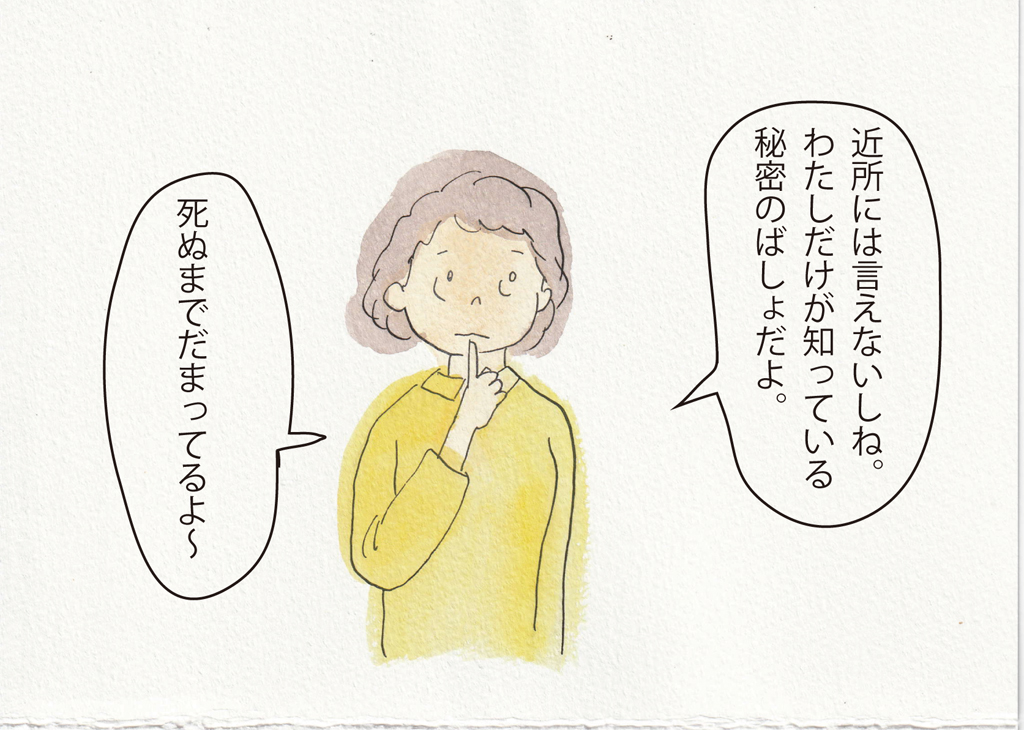 近所には言えないしね。
わたしだけが知っている
秘密のばしょだよ。
死ぬまでだまってるよ～